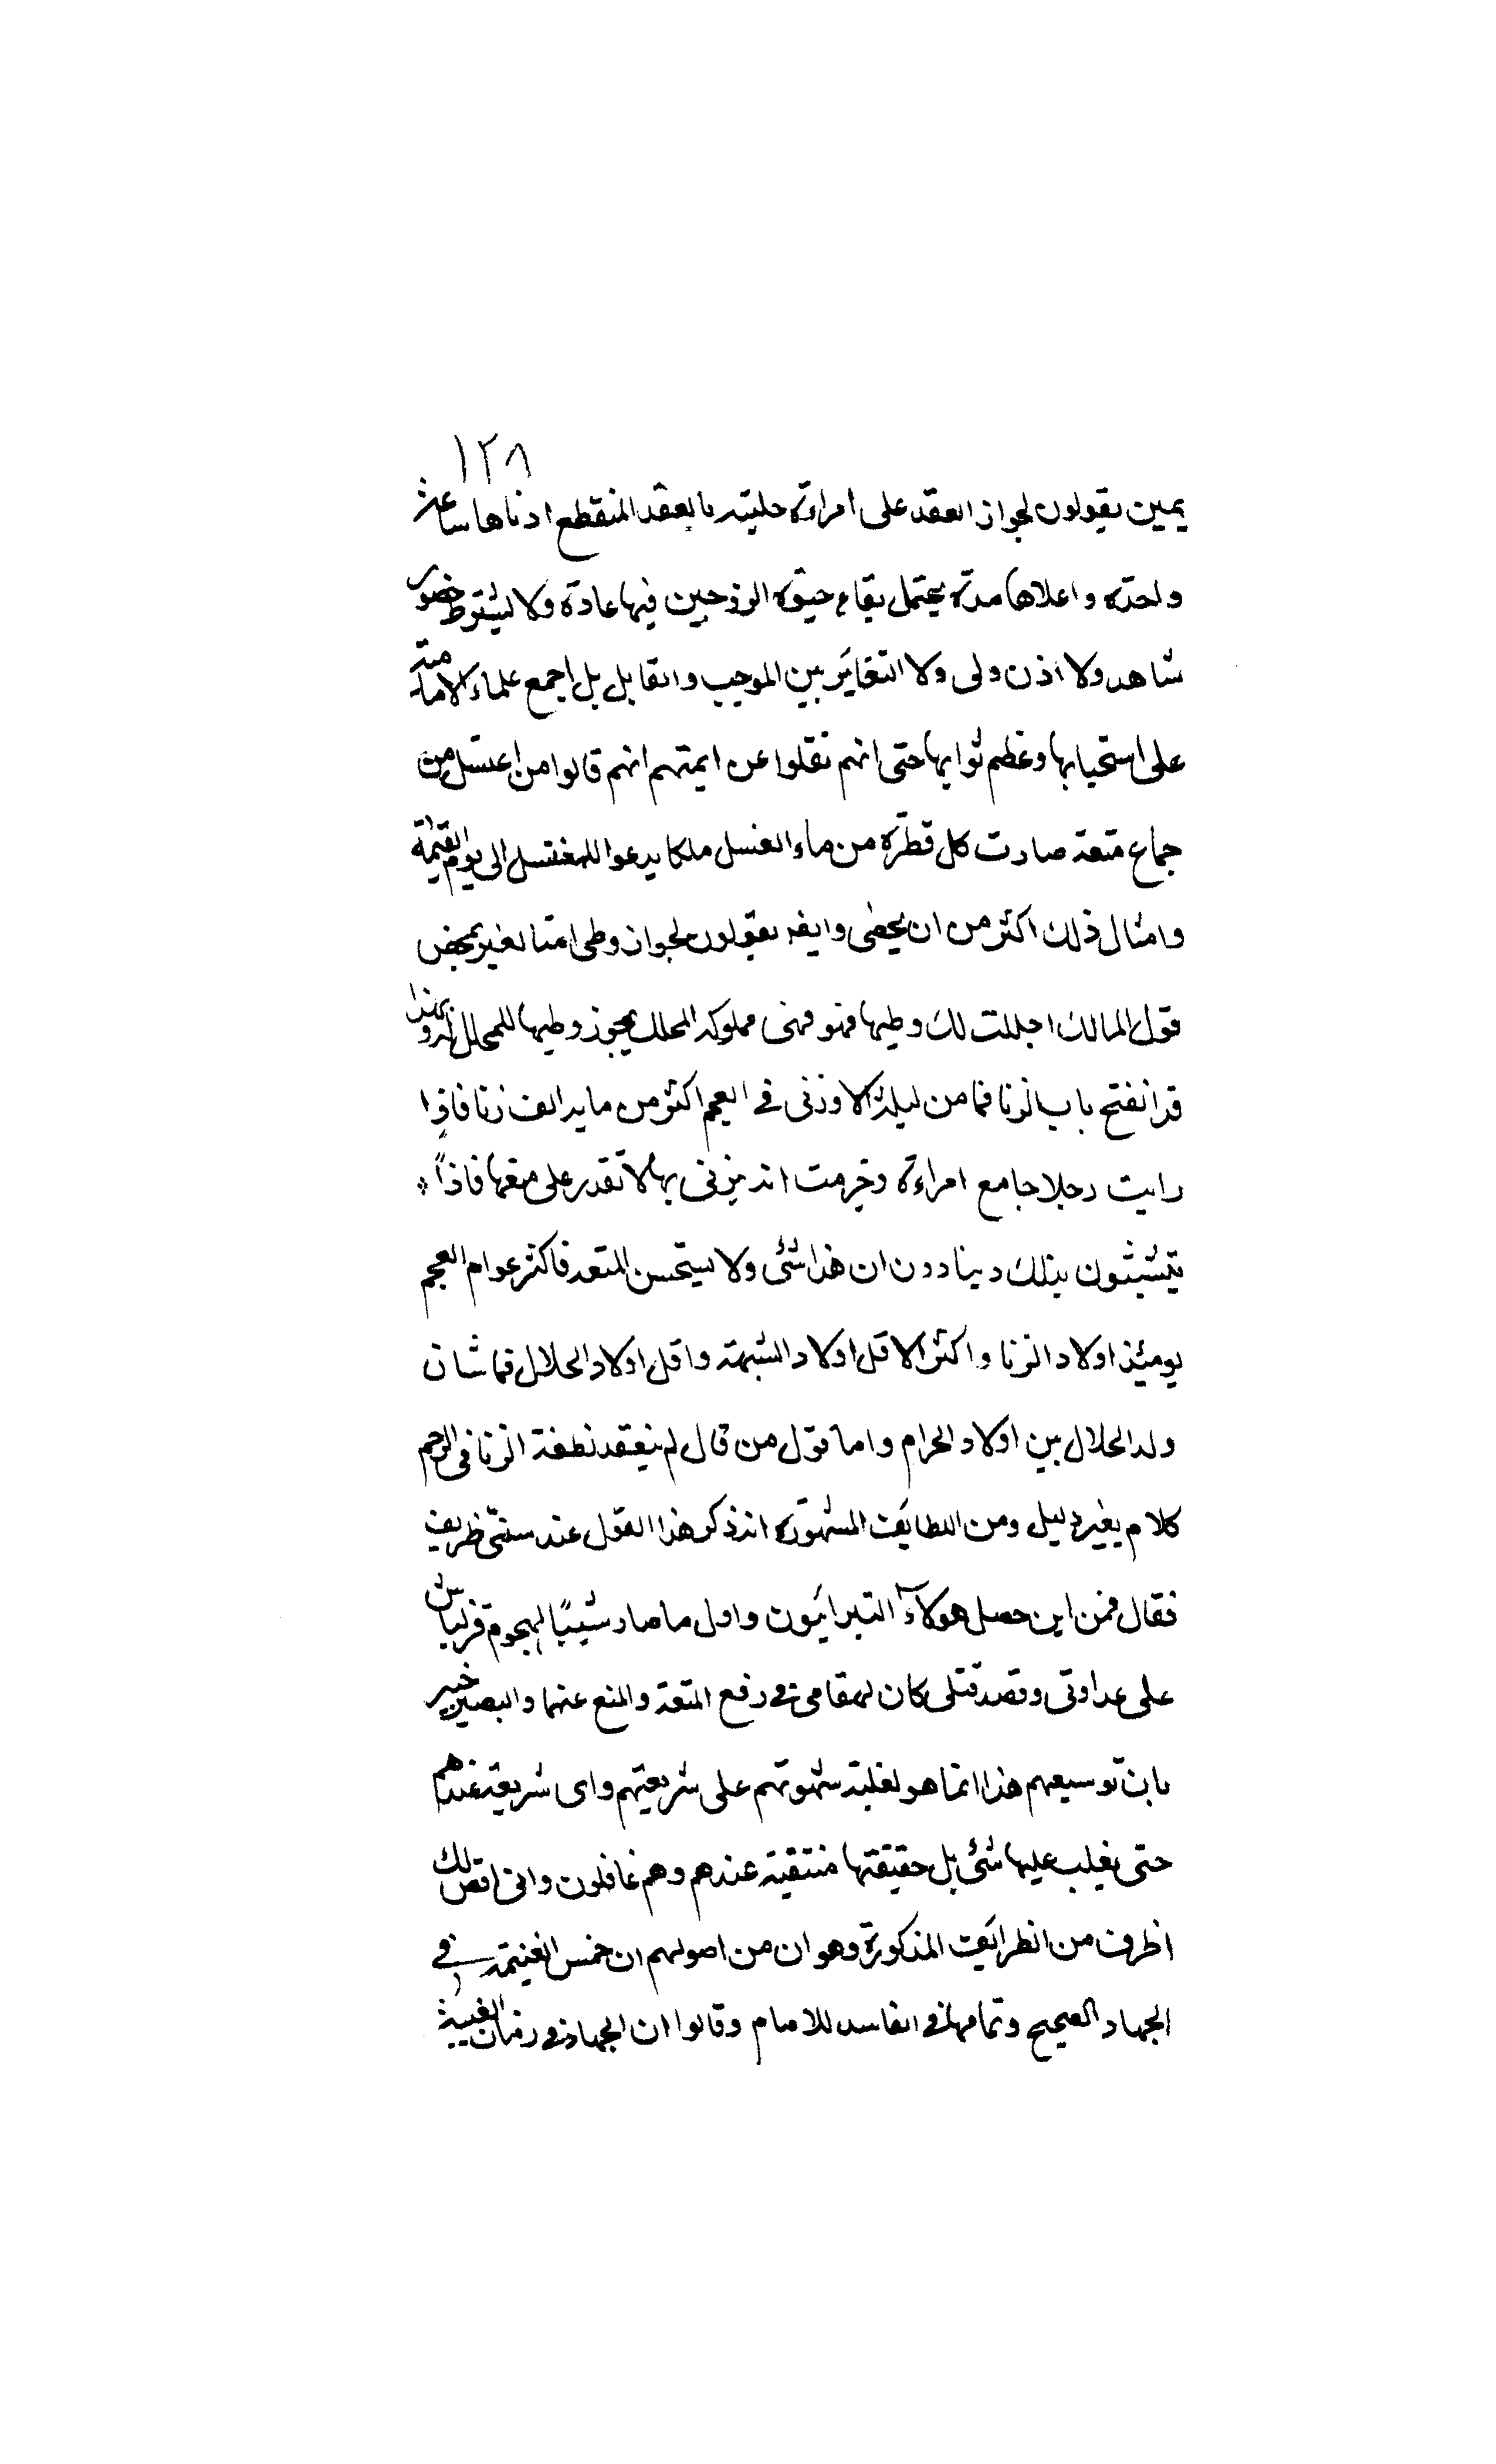 ١٢٨
يمين يقولون لجواز العقد على امراءة خليته بالعقد المنقطع ادناها ساعة
واحدة واعلاها مدة يحتمل بقاء حيوة الزوجين فيها عادة ولا يشترط حضور
شاهد ولا اذن ولى ولا التغاير بين الموجب والقابل بل اجمع علماء الامامية
على استحبابها وعظم ثوابها حتى انهم نقلوا عن ايمتهم انهم قالوا من اغتسل من
جماع متعة صارت كل قطرة من ماء الغسل ملكا يدعوا للمغتسل الى يوم القيمة
وامثال ذلك اكثر من ان يحصى وايضه يقولون بجواز وطى امة الغير بمحض
قول المالك احللت لك وطيها فهو فهى مملوكة المحلل يجوز وطيها للمحلل له وبهذا
قد انفتح باب الزنا فما من ليلة الا وزنى فى العجم اكثر من ماية الف زنا فاذا
رايت رجلا جامع امراءة وخرمت انه يزنى بها لا تقدر على منعها فاذاً
يتشبثون بذلك دينا دون ان هذا شئ ولا يستحسن المتعة فاكثر عوام العجم
يومئذ اولاد الزنا واكثر الاقل اولاد الشبهة واقل اولاد الحلال فما شان
ولد الحلال بين اولاد الحرام واما قول من قال لم ينعقد نطفة الزنا فى الرحم
كلام بغير دليل ومن اللطايف المشهورة انه ذكر هذا القول عند سنّى ظريف
فقال فمن اين حصل هؤلاء التبرائيون واول ما صار شيبًا لهجوم قزلباش
على عداوتى وقصد قتلى كان لمقامى فى رفع المتعة والمنع عنها والبصير خبير
بان توسيعهم هذا انما هو لغلبة شهوتهم على شريعتهم واى شريعة عندهم
حتى يغلب عليها شئ بل حقيقتها منتفية عندهم وهم غافلون وانى اقص لك
اظرف من الظرائف المذكورة وهو ان من اصولهم ان خمس الغنيمة فى
الجهاد الصحيح وتمامها فى الفاسد للامام وقالوا ان الجهاد فى زمان الغيبة